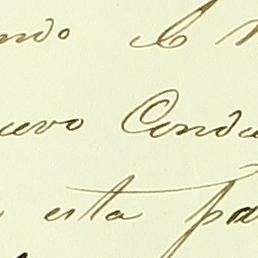 ndo le
uevo Condu
esta pa